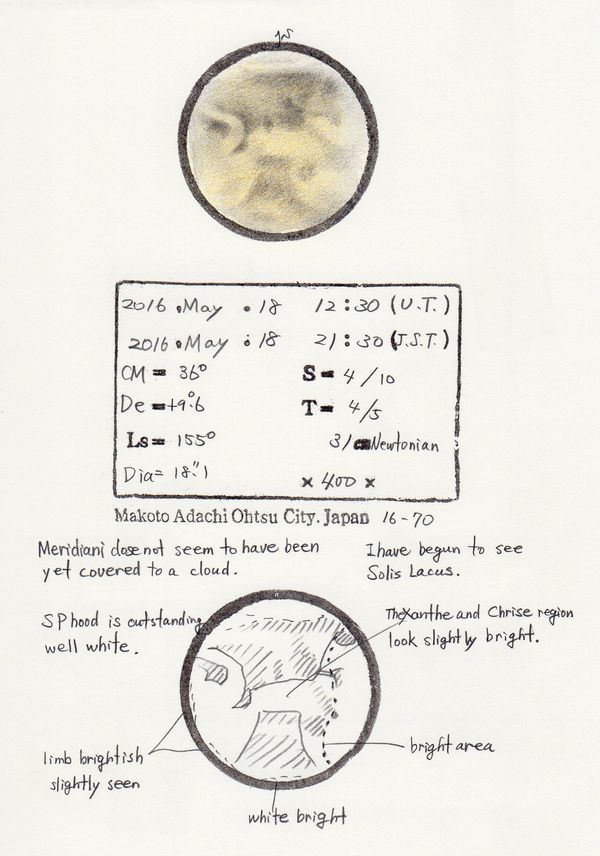 2016 . May . 18 12 : 30 (U.T.)
2016 . May . 18 21 : 30 (J.S.T.)
CM = 36° S = 4/10
De = +9.°6 T = 4/5
Ls = 155° 31 cm Newtonian
Dia = 18."1 × 400 ×
Makoto Adachi Ohtsu City. Japan 16-70
Meridiani dose not seem to have been
yet covered to a cloud.
I have begun to see
Solis Lacus.
SP hood is outstanding
well white.
The Xanthe and Chrise region
look slightly bright.
limb brightish
slightly seen
bright area
white bright